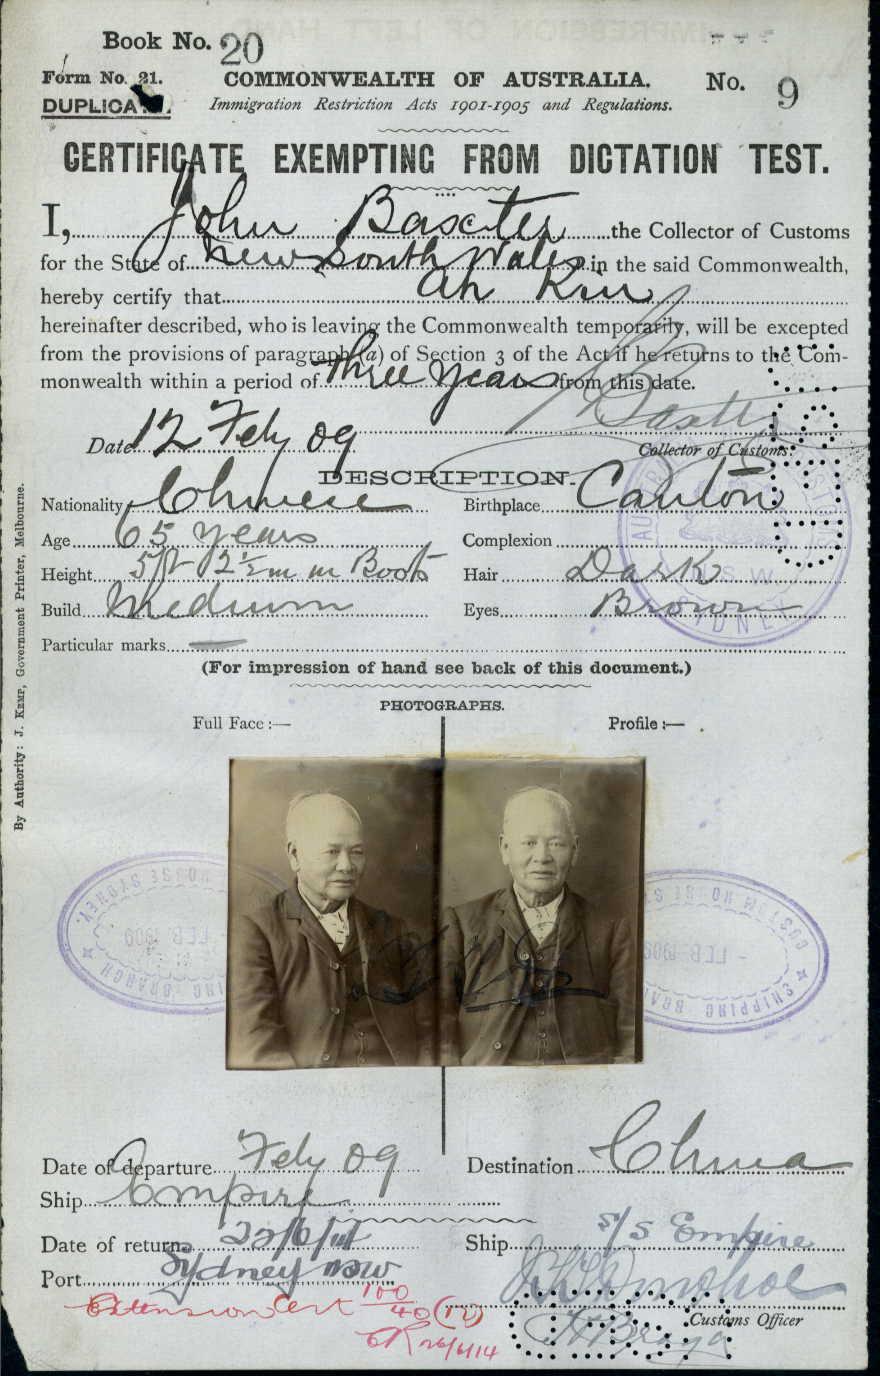 Book No. 20
Form No. 21. COMMONWEALTH OF AUSTRALIA. No. 9
DUPLICATE. Immigration Restriction Acts 1901-1905 and Regulations.
CERTIFICATE EXEMPTING FROM DICTATION TEST.
I, John Baxter the Collector of Customs
for the State of New South Wales in the said Commonwealth,
hereby certify that Ah Kin
hereinafter described, who is leaving the Commonwealth temporarily, will be excepted
from the provisions of paragraph (a) of Section 3 of the Act if he returns to the Com-
monwealth within a period of three years from this date.
Baxter
Date 12 Feby 09
Collector of Customs.
DESCRIPTION.
Nationality Chinese Birthplace Canton
Age 65 years Complexion
Height 5ft 2½in in Boots Hair Dark
Build Medium Eyes Brown
Particular marks
(For impression of hand see back of this document.)
PHOTOGRAPHS.
Full Face :— Profile :—
CUSTOM HOUSE SYDNEY.
FEB 1909
SHIPPING BRANCH
CUSTOM HOUSE SYDNEY.
FEB 1909
SHIPPING BRANCH
Date of departure Feby 09 Destination China
Ship Empire
Date of return Ship S/S Empire
Port Sydney NSW
Extension Cert 100/40
26/6/14
Customs Officer
By Authority: J. Kemp, Government Printer, Melbourne.